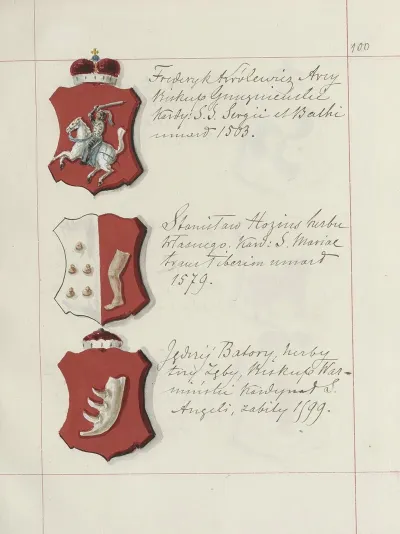 100
Fryderyk Królewicz Arcy
Biskup Gnieźnieński
Kardy: S.S. Sergii et Bachi
umarł 1503.
Stanisław Hozius herbu
własnego. Kard: S. Mariae
trans Tiberim umarł
1579.
Jędrzéj Batory, herby
trzy Zęby, Biskup War-
miński Kardynał S.
Angeli, zabity 1599.